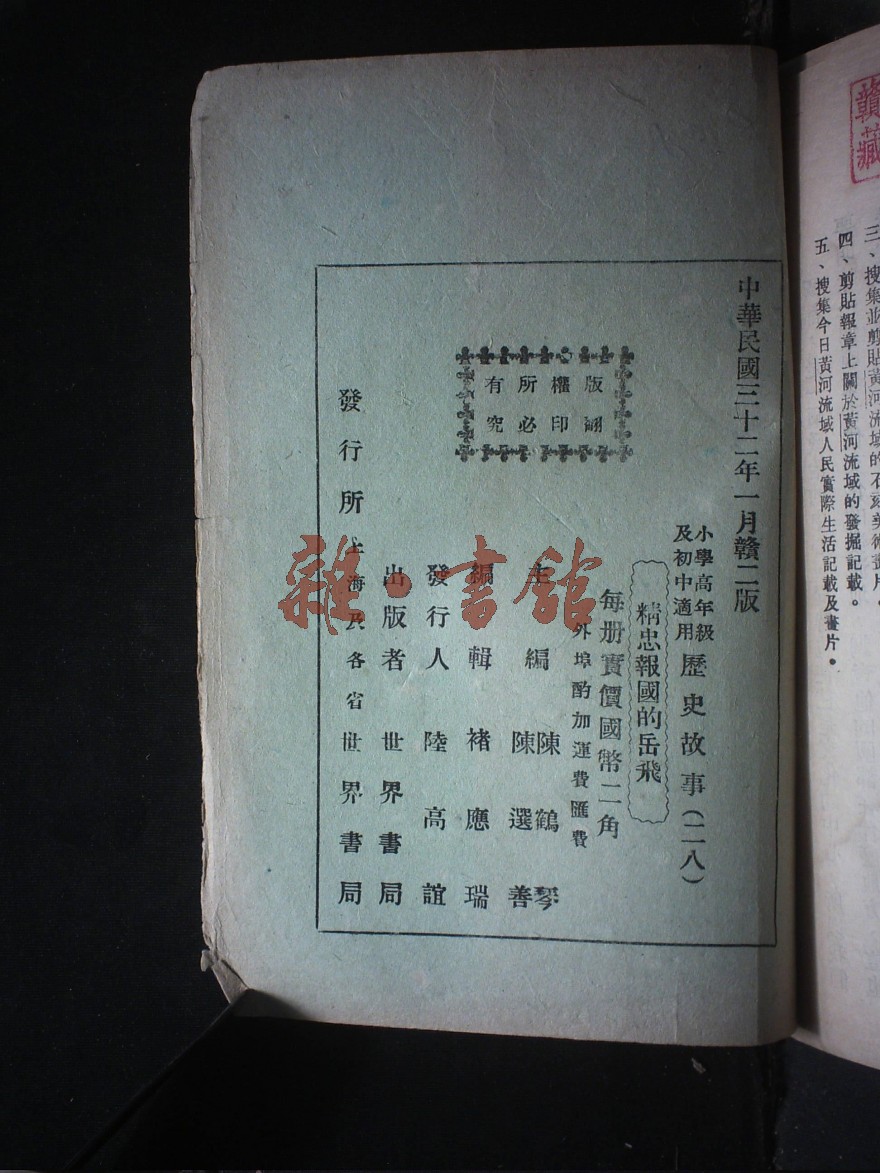 三、搜集並剪貼黃河流域的石
四、剪貼報章上關於黃河流域的發掘記載。
五、搜集今日黃河流域人民實際生活記載及畫片。
贛藏
中華民國三十二年一月贛二版
小學高年級
及初中適用
歷史故事(二八)
精忠報國的岳飛
每册實價國幣二角
外埠酌加運費匯費
版權所有
翻印必究
主編 陳鶴琴
陳選善
編輯 褚應瑞
發行人 陸高誼
出版者 世界書局
發行所 上海及各省世界書局
雜·書館